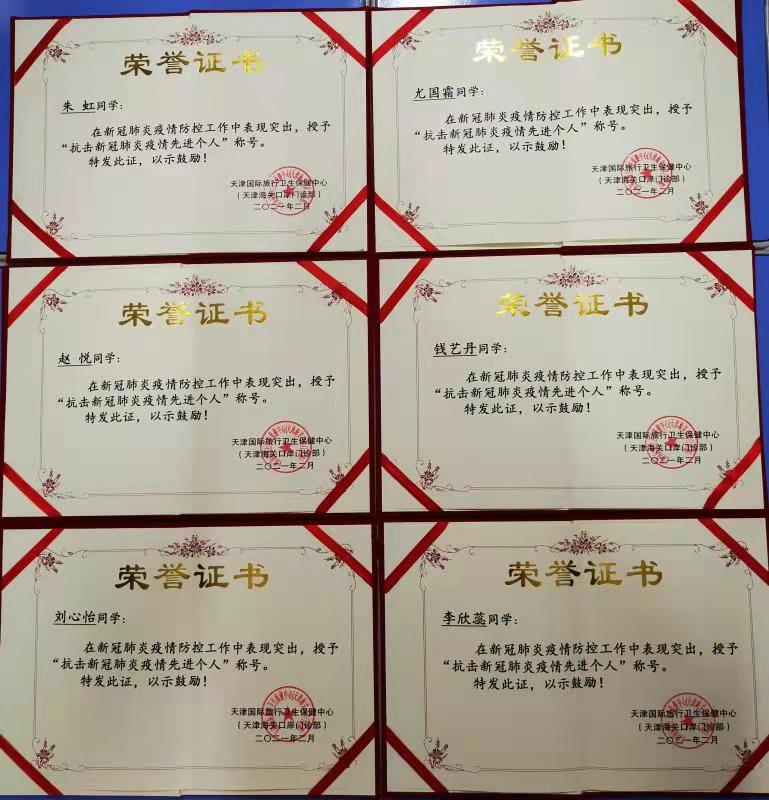 荣誉证书
朱 虹同学：
在新冠肺炎疫情防控工作中表现突出，授予
“抗击新冠肺炎疫情先进个人”称号。
特发此证，以示鼓励！
天津国际旅行卫生保健中心
（天津海关口岸门诊部）
二〇二一年二月
荣誉证书
尤国霜同学：
在新冠肺炎疫情防控工作中表现突出，授予
“抗击新冠肺炎疫情先进个人”称号。
特发此证，以示鼓励！
天津国际旅行卫生保健中心
（天津海关口岸门诊部）
二〇二一年二月
荣誉证书
赵 悦同学：
在新冠肺炎疫情防控工作中表现突出，授予
“抗击新冠肺炎疫情先进个人”称号。
特发此证，以示鼓励！
天津国际旅行卫生保健中心
（天津海关口岸门诊部）
二〇二一年二月
荣誉证书
钱艺丹同学：
在新冠肺炎疫情防控工作中表现突出，授予
“抗击新冠肺炎疫情先进个人”称号。
特发此证，以示鼓励！
天津国际旅行卫生保健中心
（天津海关口岸门诊部）
二〇二一年二月
荣誉证书
刘心怡同学：
在新冠肺炎疫情防控工作中表现突出，授予
“抗击新冠肺炎疫情先进个人”称号。
特发此证，以示鼓励！
天津国际旅行卫生保健中心
（天津海关口岸门诊部）
二〇二一年二月
荣誉证书
李欣蕊同学：
在新冠肺炎疫情防控工作中表现突出，授予
“抗击新冠肺炎疫情先进个人”称号。
特发此证，以示鼓励！
天津国际旅行卫生保健中心
（天津海关口岸门诊部）
二〇二一年二月